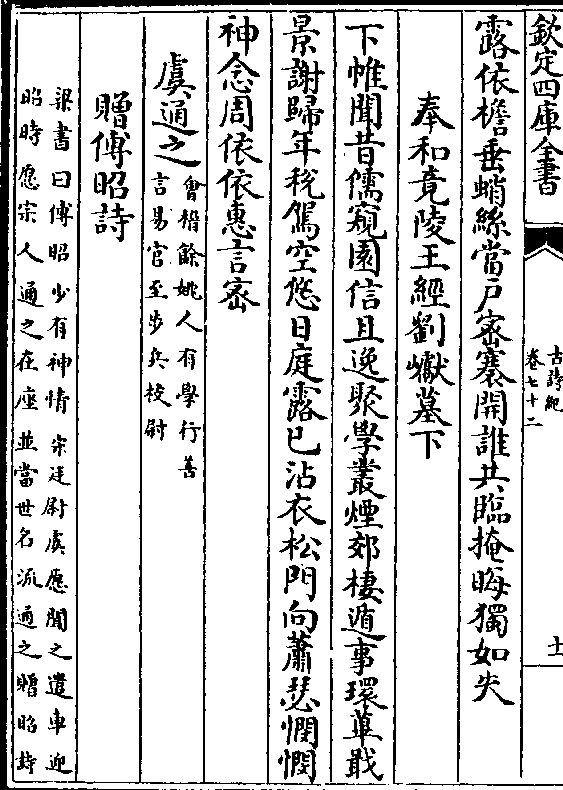 欽定四庫全書
古詩紀
卷七十二
十一
露依檐垂蛸絲當户密褰開誰共臨掩晦獨如失
奉和竟陵王經劉瓛墓下
下帷聞昔儒窺園信且逸聚學叢煙郊棲遁事環蓽戢
景謝歸年稅駕空悠日庭露已沾衣松門向蕭瑟憫憫
神念周依依惠言密
虞通之
會稽餘姚人有學行善
言易官至步兵校尉
贈傅昭詩
梁書曰傅昭少有神情宋廷尉虞愿聞之遣車迎
昭時愿宗人通之在座並當世名流通之贈昭詩